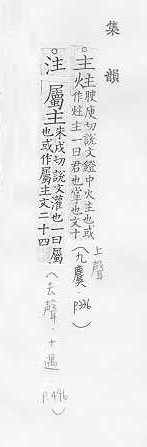 集韻
主主腴庾切説文鐙中火主也或
火作炷主一曰君也掌也文十
上聲
(九麌.P336)
注屬主朱戍切説文灌也一曰屬
也或作屬主文二十四
(去聲.十遇.P.496)